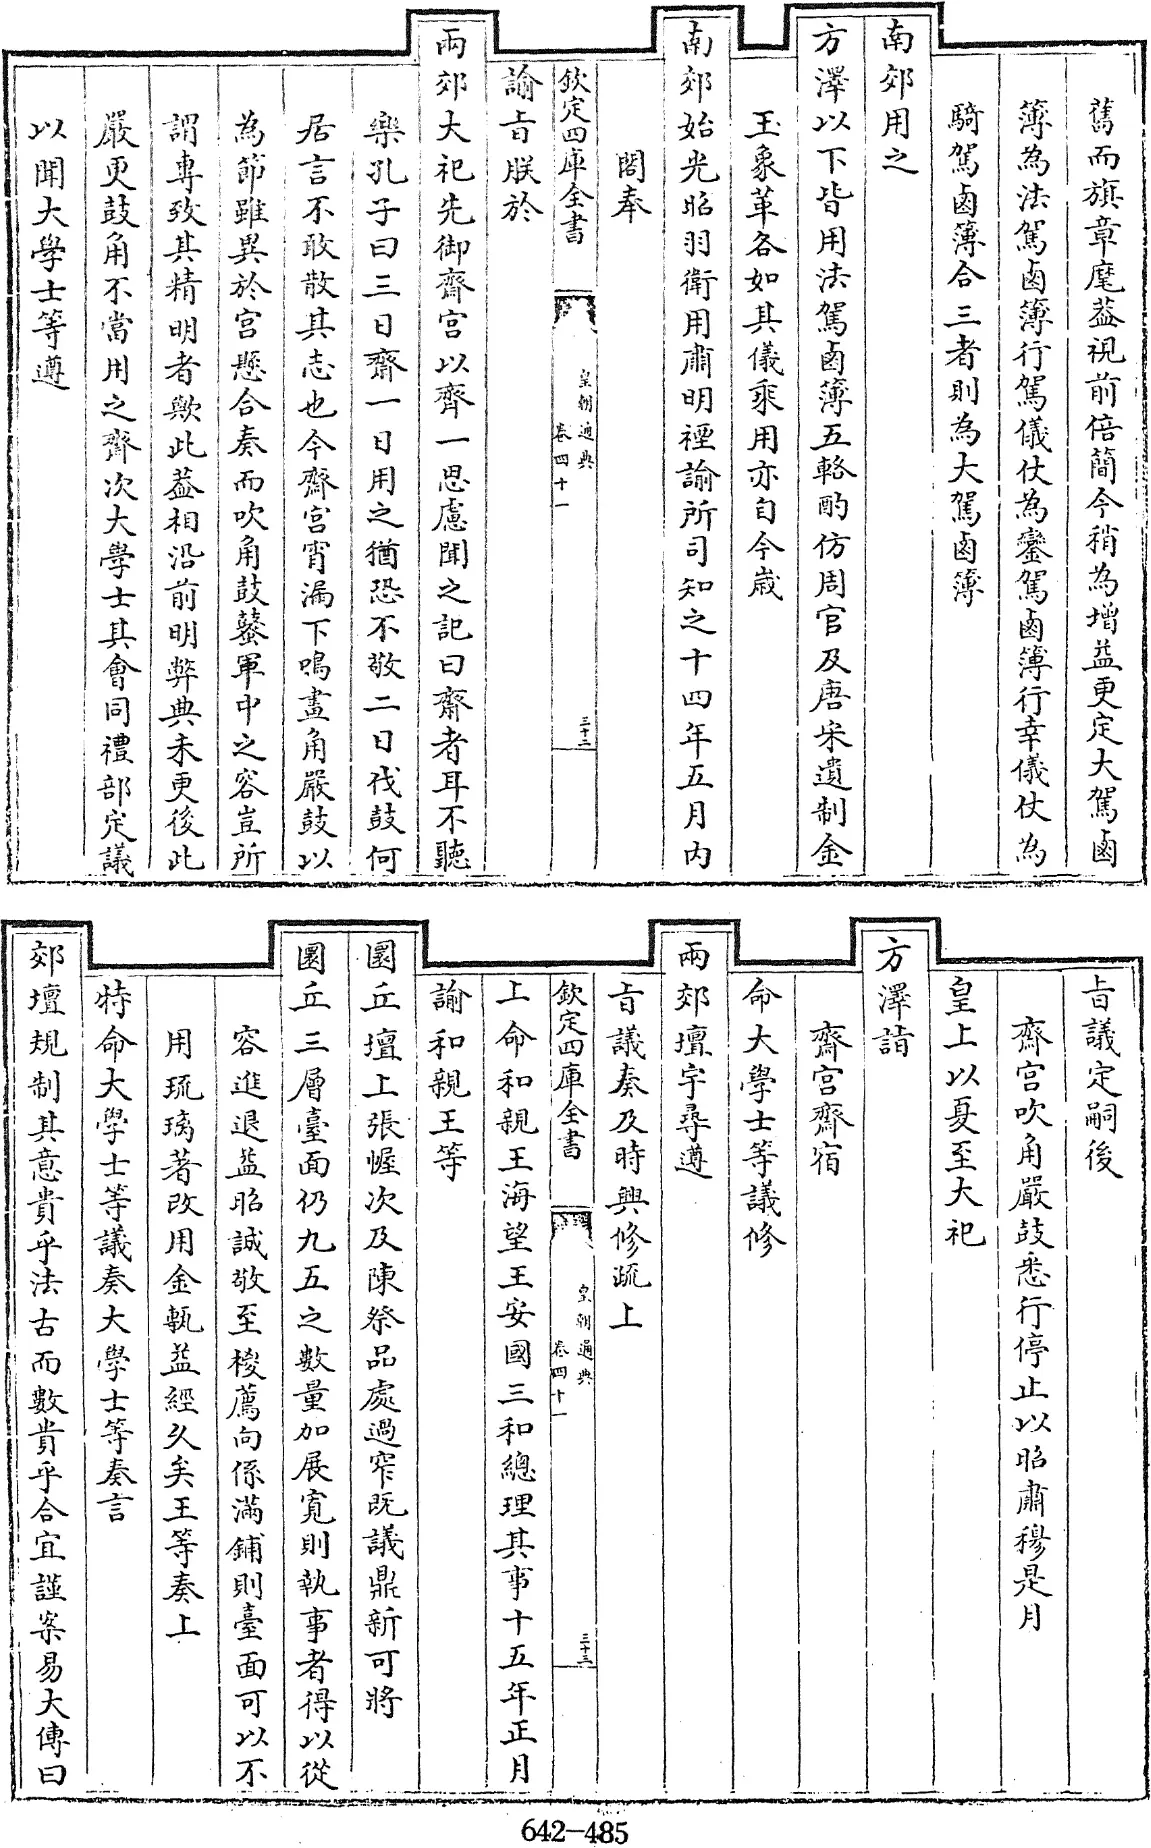 舊而旗章麾葢視前倍簡今稍為增益更定大駕鹵
簿為法駕鹵簿行駕儀仗為鑾駕鹵簿行幸儀仗為
騎駕鹵簿合三者則為大駕鹵簿
南郊用之
方澤以下皆用法駕鹵簿五輅酌仿周官及唐宋遺制金
玉象革各如其儀乘用亦自今嵗
南郊始光昭羽衛用肅明禋諭所司知之十四年五月内
閣奉
欽定四庫全書
皇朝通典
卷四十一
三十二
諭㫖朕於
兩郊大祀先御齋宫以齊一思慮聞之記曰齋者耳不聽
樂孔子曰三日齋一日用之猶恐不敬二日伐鼓何
居言不敢散其志也今齋宫宵漏下鳴畫角嚴鼓以
為節雖異於宫懸合奏而吹角鼓鼜軍中之容豈所
謂専致其精明者歟此葢相沿前明弊典未更後此
嚴更鼓角不當用之齋次大學士其會同禮部定議
以聞大學士等遵
㫖議定嗣後
齋宫吹角嚴鼓悉行停止以昭肅穆是月
皇上以夏至大祀
方澤詣
齋宫齋宿
命大學士等議修
兩郊壇宇尋遵
㫖議奏及時興修疏上
欽定四庫全書
皇朝通典
卷四十一
三十三
上命和親王海望王安國三和總理其事十五年正月
諭和親王等
圜丘壇上張幄次及陳祭品處過窄既議鼎新可將
圜丘三層臺面仍九五之數量加展寛則執事者得以從
容進退益昭誠敬至椶薦向係滿鋪則臺面可以不
用琉璃著改用金甎益經久矣王等奏上
特命大學士等議奏大學士等奏言
郊壇規制其意貴乎法古而數貴乎合宜謹案易大傳曰
642-485